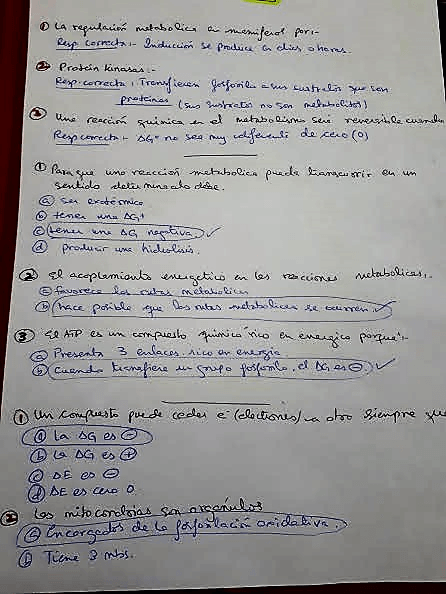 ① La regulación metabolica en mamiferol por:-
Resp correcta:- Inducción se produce en dias o horas.
② Protein Kinasas:-
Resp. correcta: Transfieren fosforilo a sus sustratos que son
proteinas (sus sustratos no son metabolitos)
③ Una reacción quimica en el metabolismo será reversible cuando
Resp correcta:- ΔG° no sea muy diferente de cero (0)
① Para que una reacción metabolica pueda transcurrir en un
sentido determinado debe.
ⓐ ser exotérmico
ⓑ tener una ΔG+
ⓒ tener una ΔG negativa. ✓
ⓓ producir una hidrolisis.
② El acoplamiento energetico en las reacciones metabolicas:.
ⓐ favorece las rutas metabolicas
ⓑ hace posible que las rutas metabolicas se ocurren. ✓
③ El ATP es un compuesto quimico rico en energico porque:-
ⓐ Presenta 3 enlaces rico en energia.
ⓑ Cuando transfiere un grupo fosforilo, el ΔG es ⊖. ✓
① Un compuesto puede ceder e⁻ (electrones) a otro siempre que
ⓐ La ΔG es ⊖
ⓑ la ΔG es ⊕
ⓒ ΔE es ⊖
ⓓ ΔE es cero 0.
② Las mitocondrias son organulos
ⓐ Encargados de la fosforilación oxidativa.
ⓑ Tiene 3 mbs.